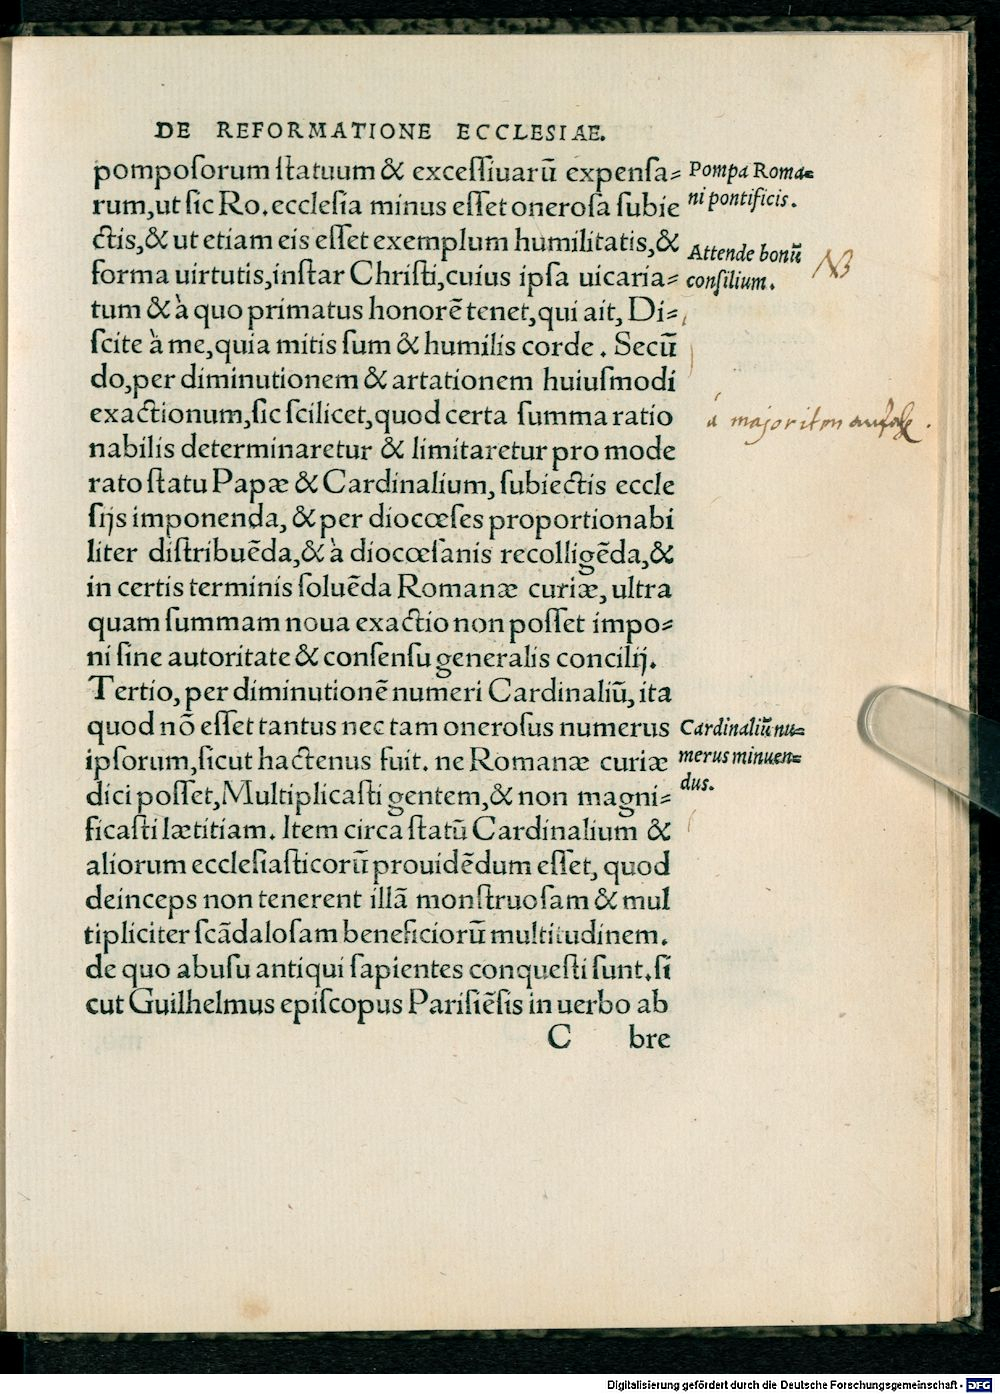 DE REFORMATIONE ECCLESIAE.
pompoſorum ſtatuum & exceſſiuarū expenſa⸗
rum,ut ſic Ro.eccleſia minus eſſet oneroſa ſubie
ctis,& ut etiam eis eſſet exemplum humilitatis,&
forma uirtutis,inſtar Chriſti,cuius ipſa uicaria⸗
tum & à quo primatus honorē tenet,qui ait, Di⸗
ſcite à me,quia mitis ſum & humilis corde. Secū
do,per diminutionem & artationem huiuſmodi
exactionum,ſic ſcilicet,quod certa ſumma ratio
nabilis determinaretur & limitaretur pro mode
rato ſtatu Papæ & Cardinalium, ſubiectis eccle
ſijs imponenda, & per diocœſes proportionabi
liter diſtribuēda,& à diocœſanis recolligēda,&
in certis terminis ſoluēda Romanæ curiæ, ultra
quam ſummam noua exactio non poſſet impo⸗
ni ſine autoritate & conſenſu generalis concilij.
Tertio, per diminutionē numeri Cardinaliū, ita
quod nō eſſet tantus nec tam oneroſus numerus
ipſorum,ſicut hactenus fuit. ne Romanæ curiæ
dici poſſet,Multiplicaſti gentem,& non magni⸗
ficaſti lætitiam. Item circa ſtatū Cardinalium &
aliorum eccleſiaſticorū prouidēdum eſſet, quod
deinceps non tenerent illā monſtruoſam & mul
tipliciter ſcādaloſam beneficiorū multitudinem.
de quo abuſu antiqui ſapientes conqueſti ſunt.ſi
cut Guilhelmus epiſcopus Pariſiēſis in uerbo ab
C bre
Pompa Roma⸗
ni pontificis.
Attende bonū
conſilium.
NB
à majoritm
Cardinaliū nu⸗
merus minuen⸗
dus.
Digitalisierung gefördert durch die Deutsche Forschungsgemeinschaft - DFG